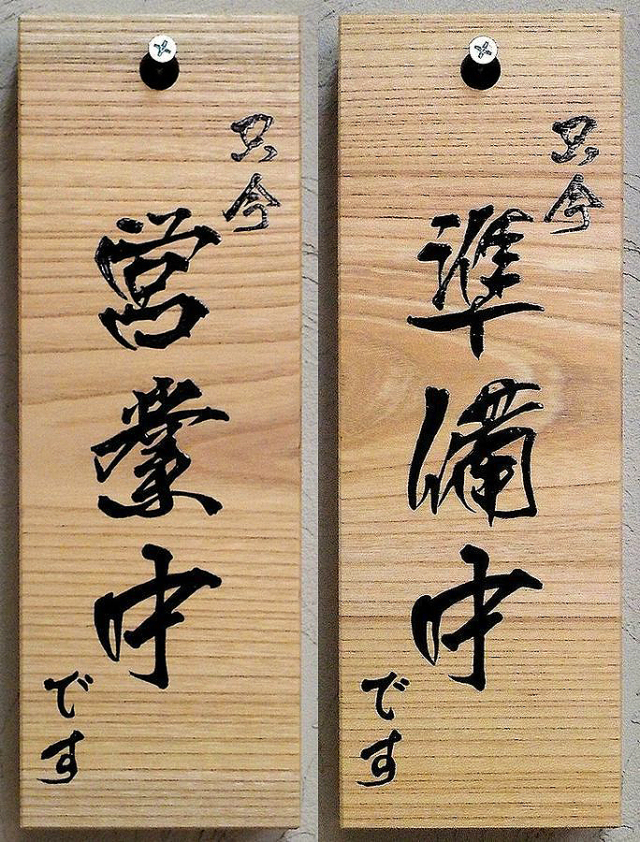 只今
営業中
です
只今
準備中
です